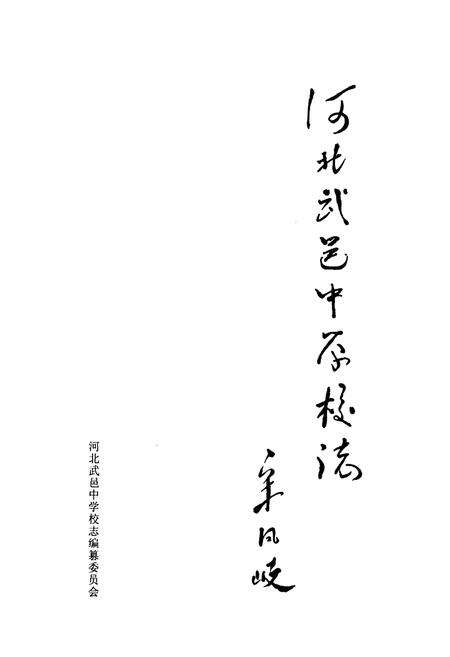 河北武邑中学校誌
凤岐
河北武邑中学校志编纂委员会